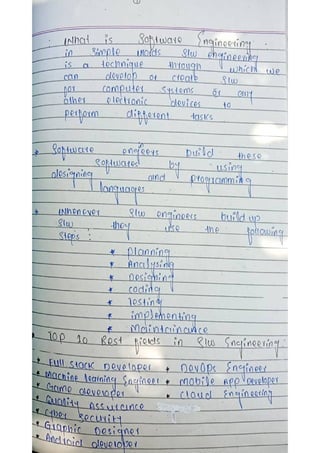 What is Software Engineering.
in Simple words S/w engineering
is a technique through which we
can develop or create S/w
for computer systems or any
other electronic devices to
perform different tasks
* Software engieers build these
Softwares by using
designing and programming
languages
* Whenever S/w engineers build up
S/w they use the following
Steps :
* planning
* Analysing
* Designing
* coding
* Testing
* implementing
* Maintainance
* TOP 10 Best fields in S/w Engineering :
* Full stack Developer * DevOps Engineer
* Machine learning Engineer * mobile App developer
* Game developer * cloud Engineering
* Quality Assurance
* Cyber security
* Graphic Designer
* Android developer